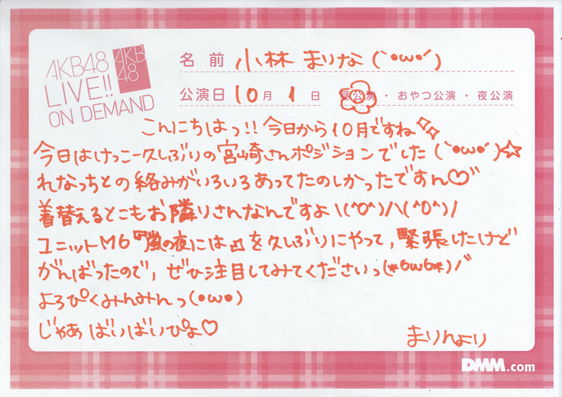 AKB48
LIVE!!
ON DEMAND
AKB
48
名前 小林 まりな (｀•ω•´)
公演日 10月 1日 昼公演・おやつ公演・夜公演
こんにちはっ!! 今日から10月ですね♪♪
今日はけっこー久しぶりの宮崎さんポジションでした (｀•ω•´)☆
れなっちとの絡みがいろいろあってたのしかったですん♡
着替えるとこもお隣りさんなんですよ \(^O^)/\(^O^)/
ユニットM6『嵐の夜には』を久しぶりにやって、緊張したけど
がんばったので、ぜひ注目してみてくださいっ(*6ω6*)ﾉﾞ
よろぴくみんみんっ(•ω•)
じゃあ ばいばいぴよ♡
まりんより
DMM.com